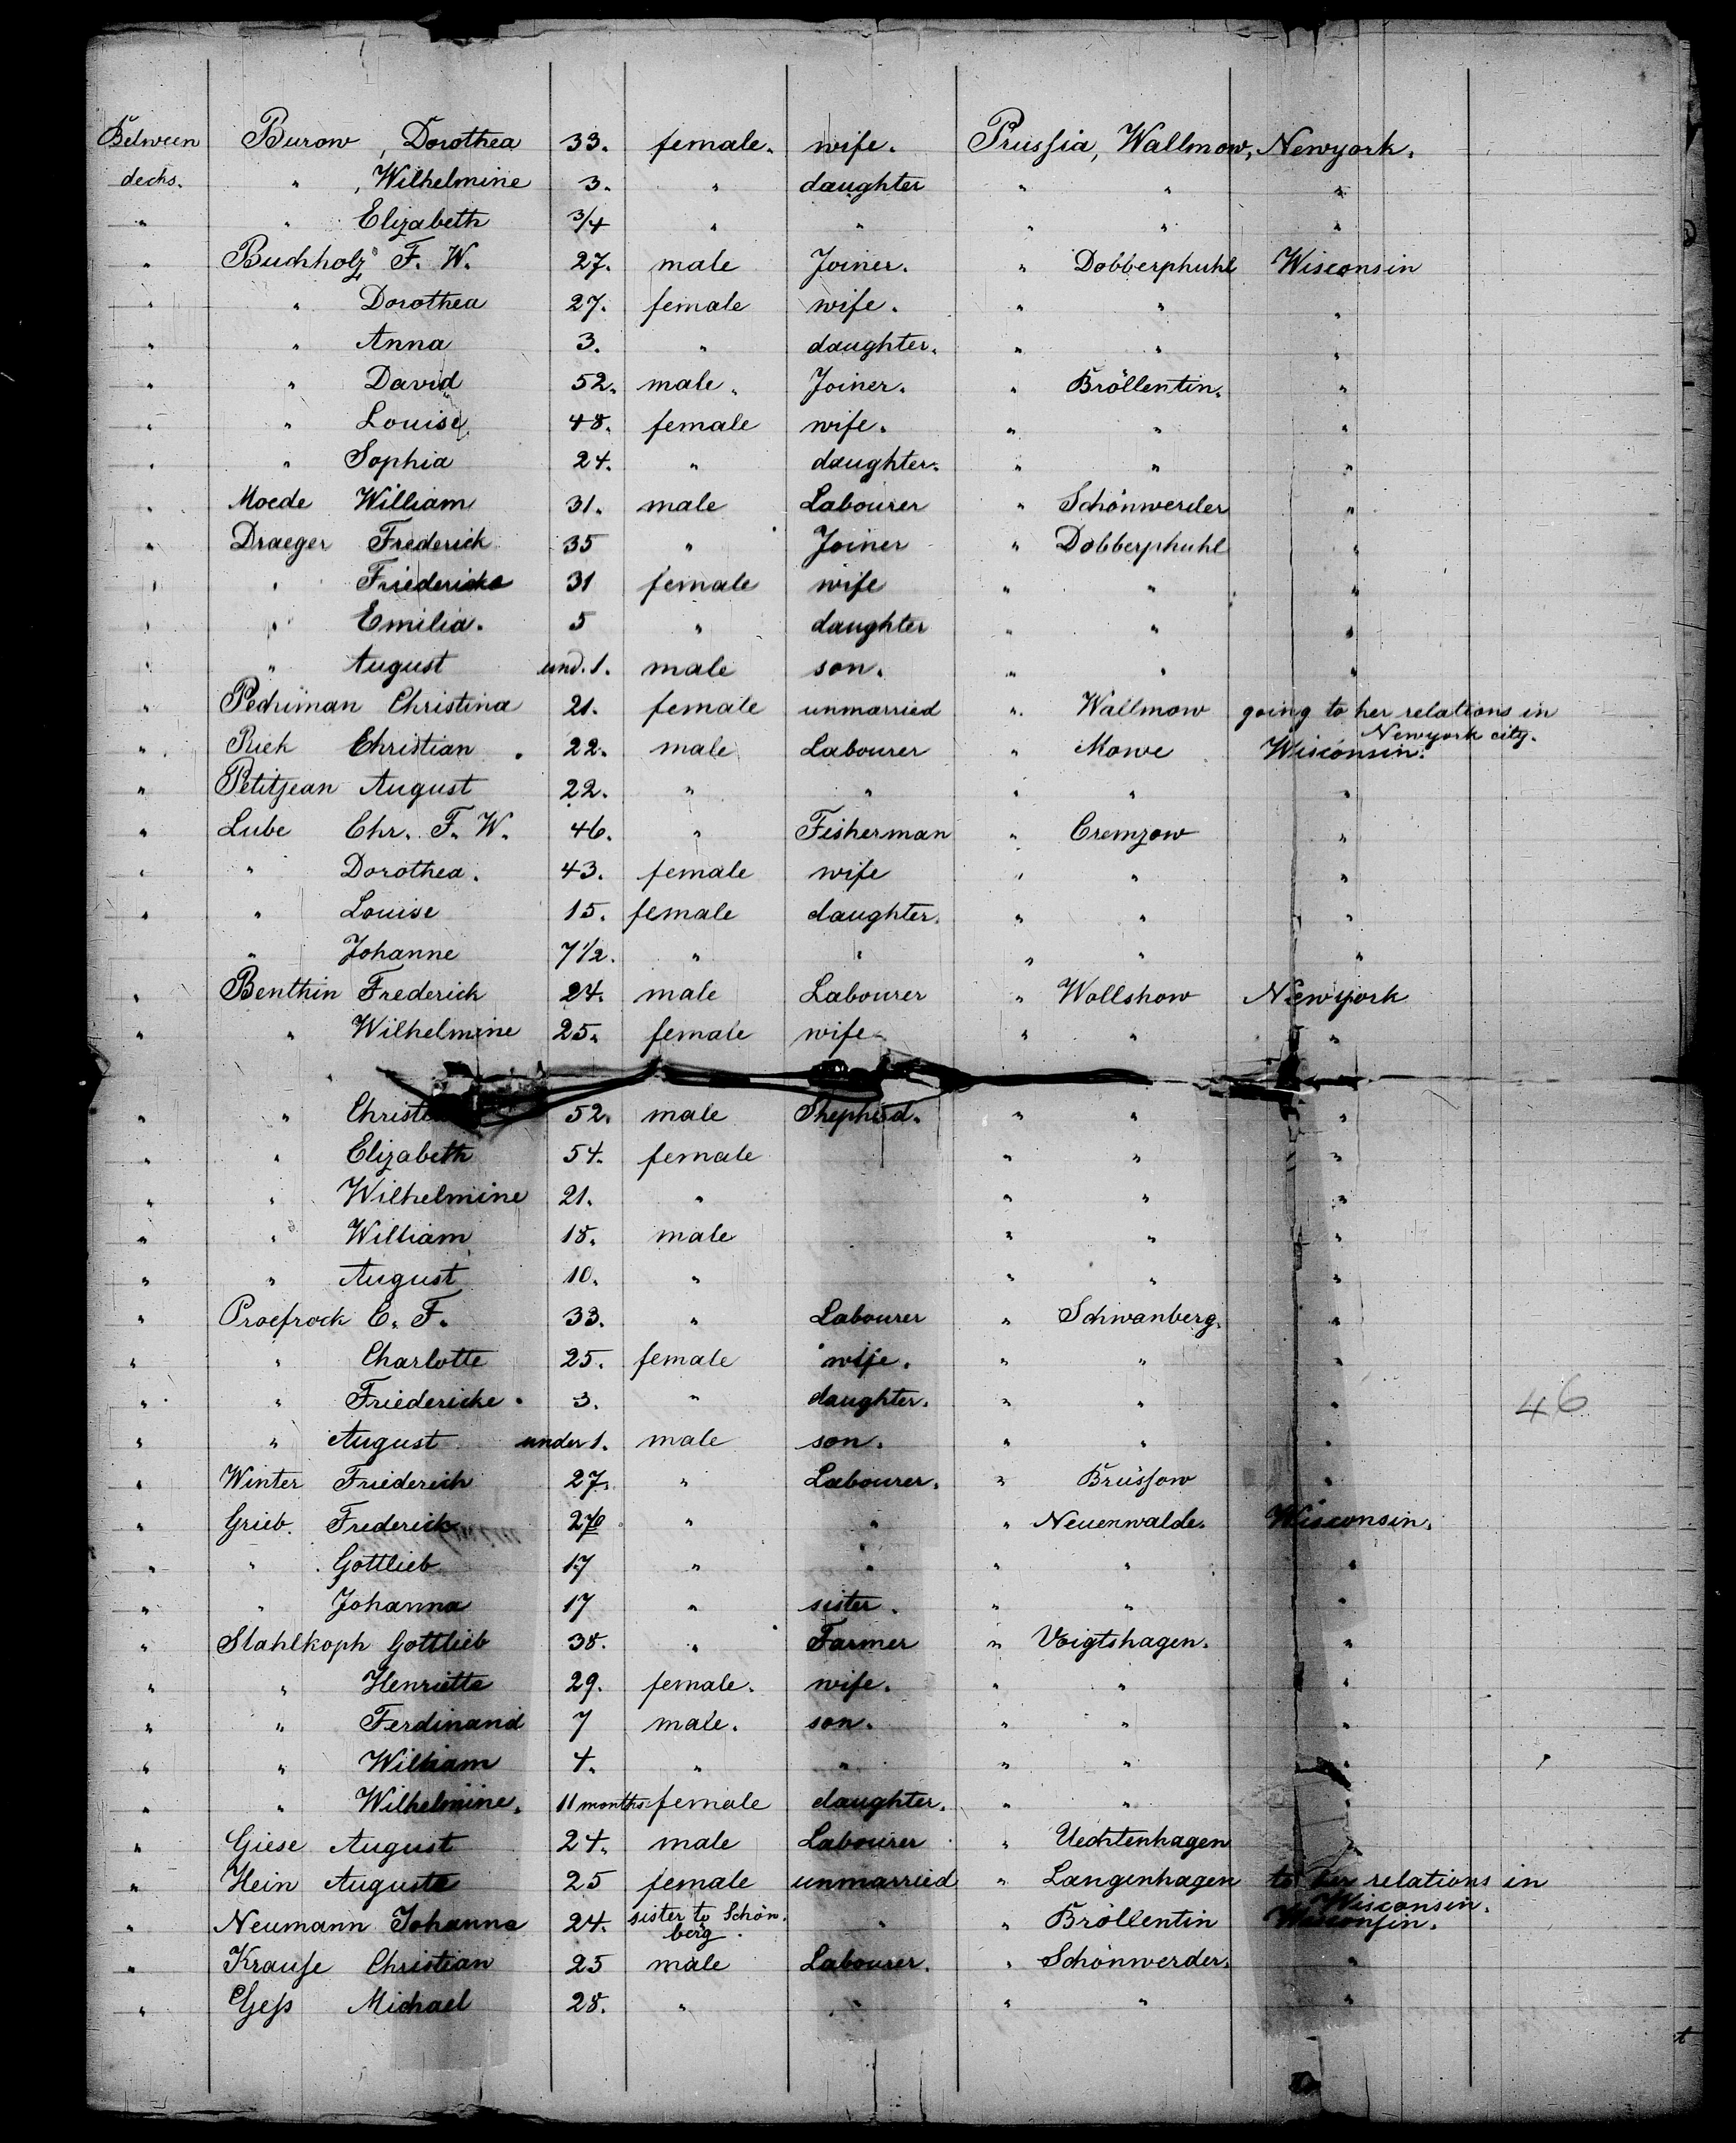 Between Burow, Dorothea 33. female. wife. Prussia, Wallmow, Newyork.
decks. " , Wilhelmine 3. " daughter " " "
" " Elizabeth 3/4 " " " " "
" Buchholz F. W. 27. male Joiner. " Dobberphuhl Wisconsin
" " Dorothea 27. female wife. " " "
" " Anna 3. " daughter. " " "
" " David 52. male. Joiner. " Bröllentin. "
" " Louise 48. female wife. " " "
" " Sophia 24. " daughter. " " "
" Moede William 31. male Labourer " Schönwerder "
" Draeger Frederick 35 " Joiner " Dobberphuhl "
" " Friedericke 31 female wife " " "
" " Emilia. 5 " daughter " " "
" " August und. 1. male son. " " "
" Christina 21. female unmarried " Wallmow going to her relations in
Newyork city.
" Riek Christian. 22. male Labourer " Mowe Wisconsin.
" Petitjean August 22. " " " " "
" Lube Chr. F. W. 46. " Fisherman " Cremzow "
" " Dorothea. 43. female wife " " "
" " Louise 15. female daughter. " " "
" Johanne 7 1/2. " " " " "
" Benthin Frederick 24. male Labourer " Wollshow Newyork
" " Wilhelmine 25. female wife " " "
" " 52. male Shepherd. " " "
" " Elizabeth 54. female " " "
" " Wilhelmine 21. " " " "
" " William 18. male " " "
" " August 10. " " " "
" Proefrock C. F. 33. " Labourer " Schwanberg. "
" " Charlotte 25. female wife. " " "
" " Friedericke. 3. " daughter. " " "
46
" " August under 1. male son. " " "
" Winter Friederich 27. " Labourer. " Brüssow "
" Grieb. Frederick " " " Neuenwalde. Wisconsin.
" " Gottlieb 17 " " " " "
" " Johanna 17 " sister. " " "
" Stahlkoph Gottlieb 38. " Farmer " Voigtshagen. "
" " Henriette 29. female. wife. " " "
" " Ferdinand 7 male. son. " " "
" " William 4. " " " " "
" " Wilhelmine. 11 months female daughter. " " "
" Giese August 24. male Labourer " Uechtenhagen "
" Hein Auguste 25 female unmarried " Langenhagen to her relations in
Wisconsin.
" Neumann Johanna 24. sister to Schön- " " Bröllentin Wisconsin.
berg.
" Krause Christian 25 male Labourer. " Schönwerder. "
" Gess Michael 28. " " " " "